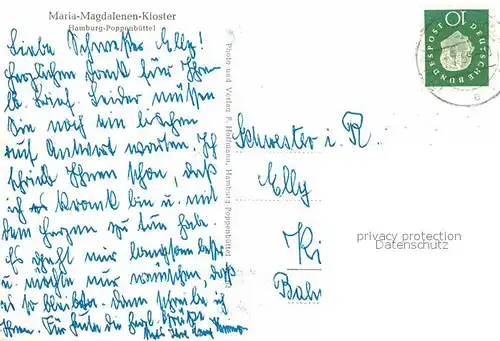 Maria-Magdalenen-Kloster
Hamburg-Poppenbüttel
Liebe Schwester Elly!
Herzlichen Dank für Ihren
lb. Brief. Leider müssen
Sie noch ein bißchen
auf Antwort warten. Ich
schrieb Ihnen schon, daß
ich so krank bin u. mit
dem Herzen zu tun habe.
Es geht mir langsam besser
u. möchte nur wünschen, daß
es so bleibt. Dann schreibe ich
Ihnen. Für heute die herzl. Grüße
Photo und Verlag F. Hoffmann, Hamburg-Poppenbüttel
10
DEUTSCHE BUNDESPOST
Schwester i. R.
Elly
Ki
Bahn
privacy protection
Datenschutz